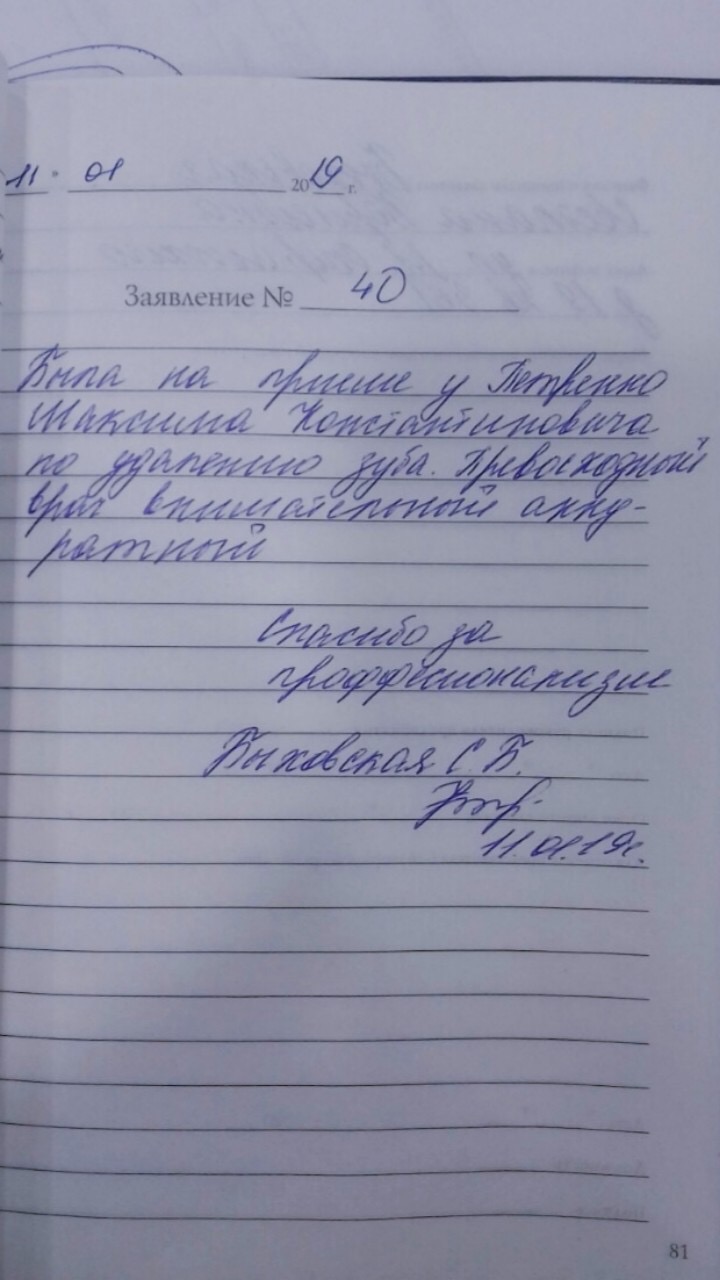 11 " 01 2019 г.
Заявление № 40
Была на приеме у Петренко
Максима Константиновача
по удалению зуба. Превосходный
врач внимательный акку-
ратный
Спасибо за
проффесионализм
Быховская С. Б.
11.01.19г.
81